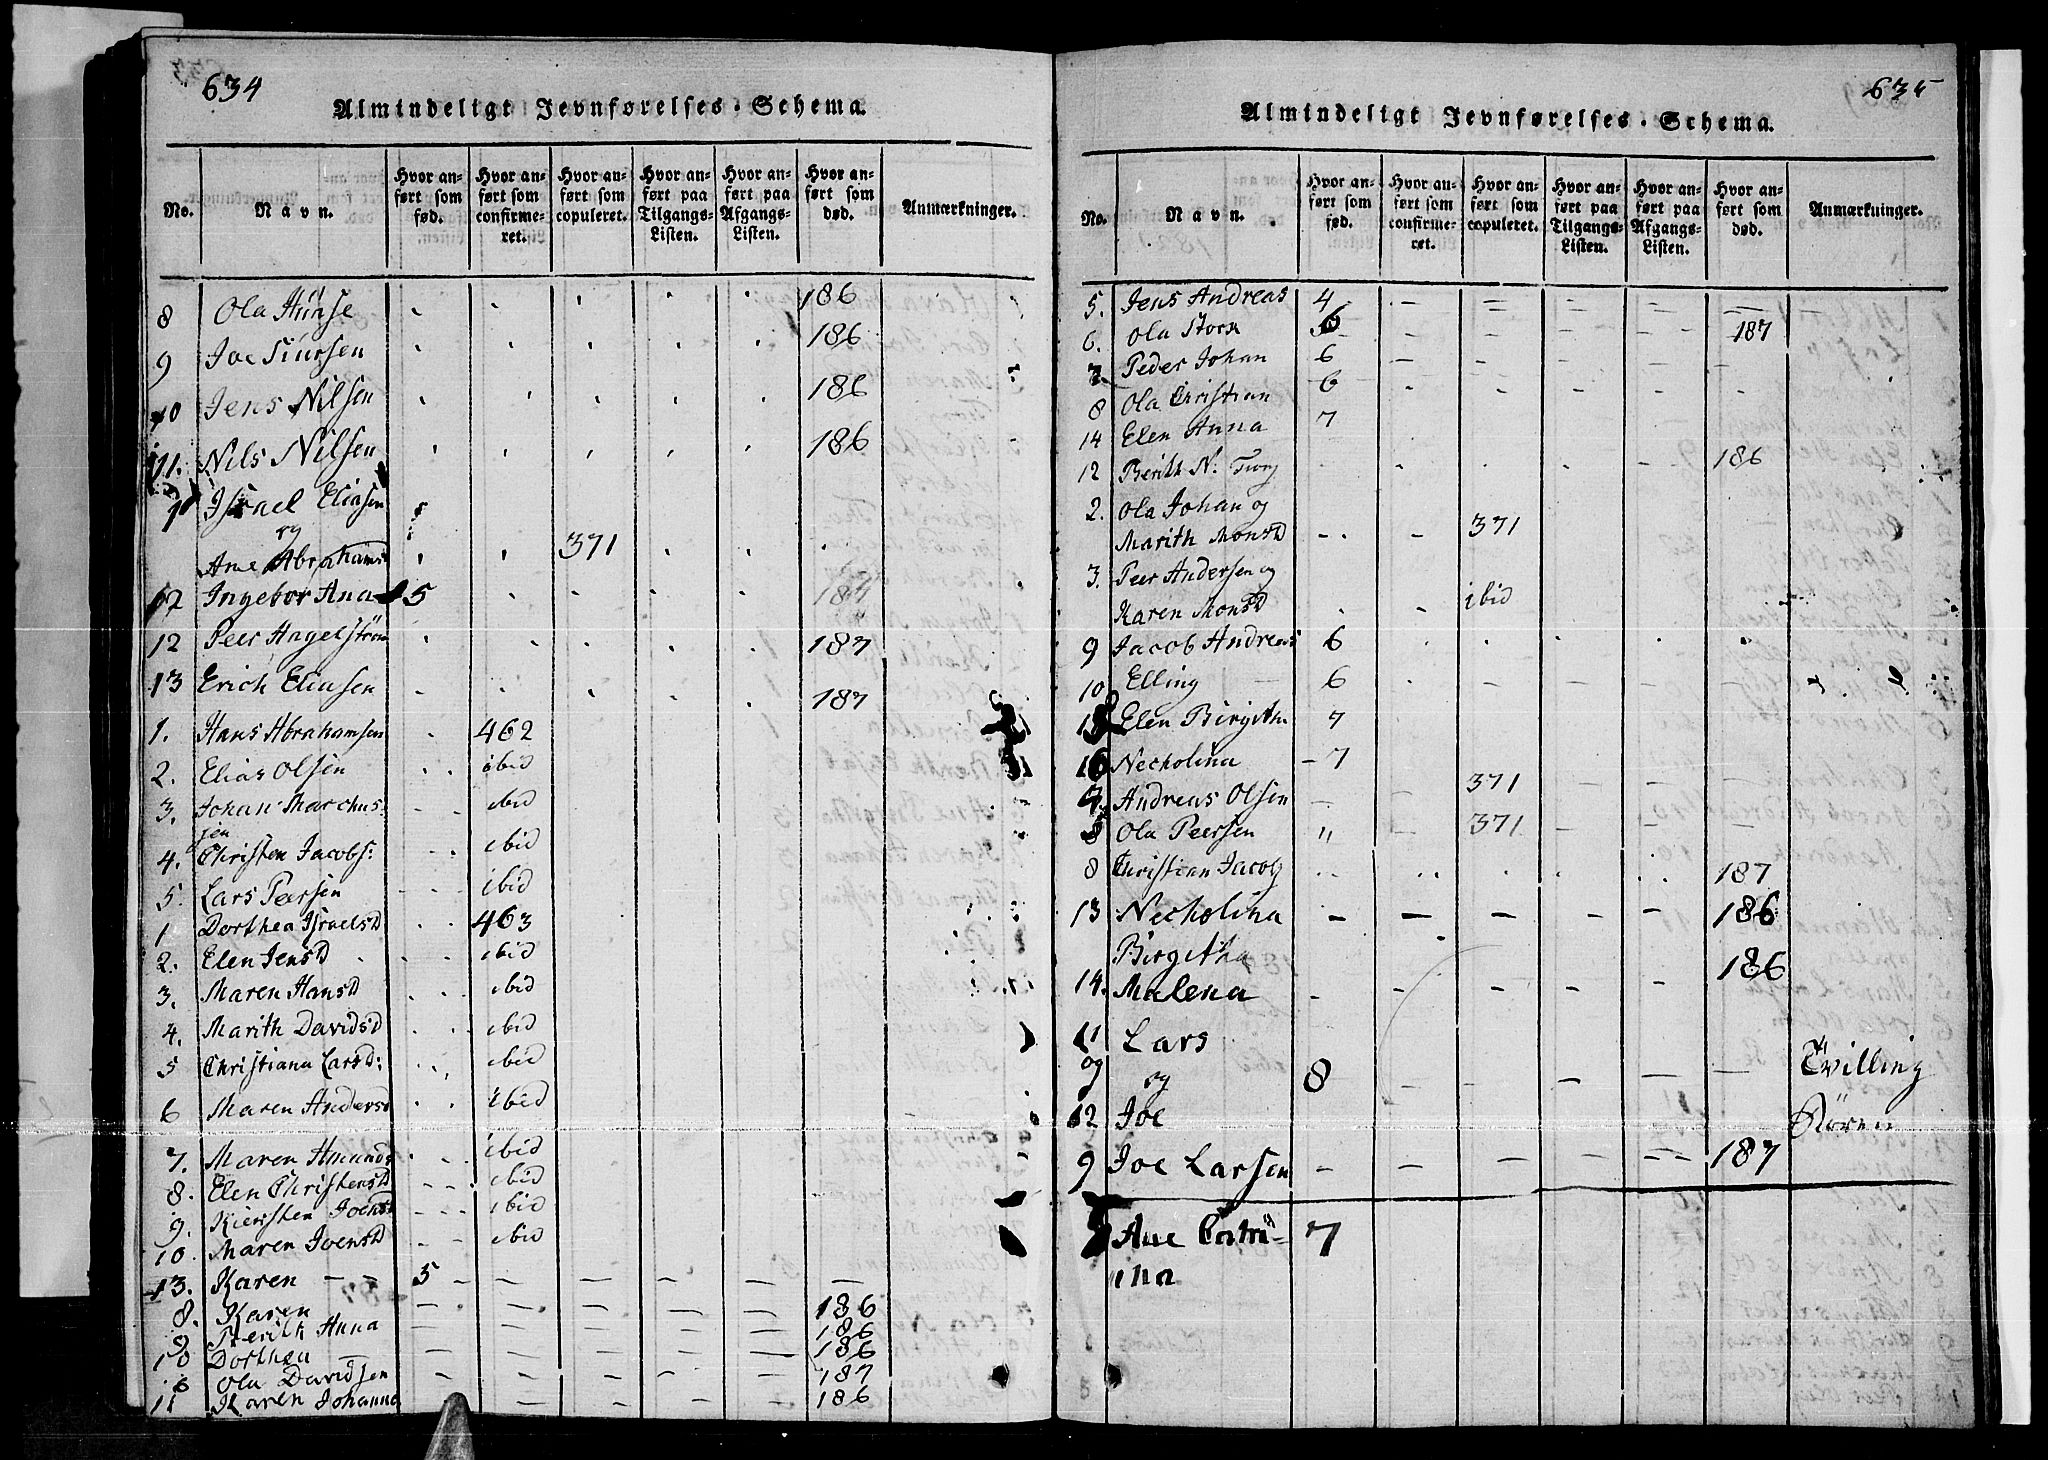 634
Almindeligt Jevnførelses-Schema.
No.
Navn.
Hvor anført som fød.
Hvor anført som confirmeret.
Hvor anført som copuleret.
Hvor anført paa Tilgangs-Listen.
Hvor anført paa Afgangs-Listen.
Hvor anført som død.
Anmærkninger.
8 Ola Hünse 186
9 Joe Siursen 186
10 Jens Nilsen 186
11. Nils Nilsen 186
1 Israel Eliasen
og
Ane Abrahamsd 371
12 Ingebor Ana 5 187
12 Peer Angelström 187
13 Erich Eliasen 187
1. Hans Abrahamsen 462
2. Elias Olsen ibid
3. Johan Marchus: ibid
sen
4. Christen Jacobs: ibid
5. Lars Peersen ibid
1 Dorthea Israelsd 463
2. Elen Jensd ibid
3. Maren Hansd ibid
4. Marith Davidsd ibid
5 Christiana Larsd: ibid
6 Maren Andersd ibid
7. Maren Amunds ibid
8. Elen Christensd ibid
9. Kiersten Joensd ibid
10. Maren Joensd ibid
13. Karen — — 5 — — — — — —
8. Karen — — — — — 186
9 Berith Anna — — — — — 186
10 Dorthea — — — — — 186
Ola Davidsen — — — — — 187
11 Karen Johanna — — — — 186
635
Almindeligt Jevnførelses-Schema.
No.
Navn.
Hvor anført som fød.
Hvor anført som confirmeret.
Hvor anført som copuleret.
Hvor anført paa Tilgangs-Listen.
Hvor anført paa Afgangs-Listen.
Hvor anført som død.
Anmærkninger.
5. Jens Andreas 4
6. Ola Storn 187
7 Peder Johan 6
8 Ola Christian 6
14 Elen Anna 7
12 Berith N: 186
2. Ola Johan og
Marith Monsd 371
3. Peer Andersen og
Karen Monsd ibid
9 Jacob Andreas 6
10 Elling 6
Elen Birgitha 7
16 Necholina 7
7. Andreas Olsen 371
8 Ola Peersen " 371
8 Christian Jacob 187
13 Necholina — — — — — 186
Birgitha
14. Malena — — — — — 186
11 Lars
og og 8 — — — — — Tvilling
12 Joe Dören
9 Joe Larsen — — — — — 187
Ane Catri= 7
na